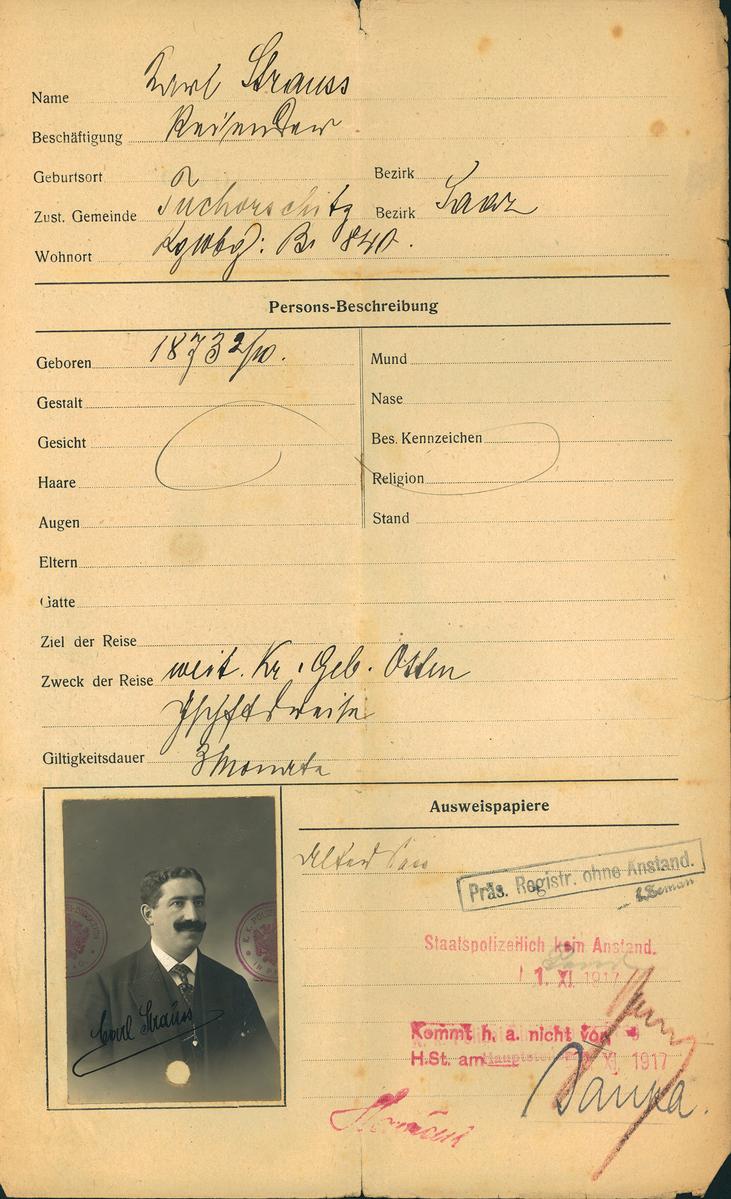 Name Karl Strauss
Beschäftigung Reisender
Geburtsort
Bezirk
Zust. Gemeinde Tuchorschitz Bezirk Saaz
Wohnort 840.
Persons-Beschreibung
Geboren 1873 2/10.
Mund
Gestalt
Nase
Gesicht
Bes. Kennzeichen
Haare
Religion
Augen
Stand
Eltern
Gatte
Ziel der Reise
Zweck der Reise weit. Kr. Geb. Osten
Giltigkeitsdauer 3 Monate
Ausweispapiere
Alter Pass
Präs. Registr. ohne Anstand.
Staatspolizeilich kein Anstand.
1. XI. 1917
Kommt h. a. nicht vor
H.St. am XI. 1917
Carl Strauss